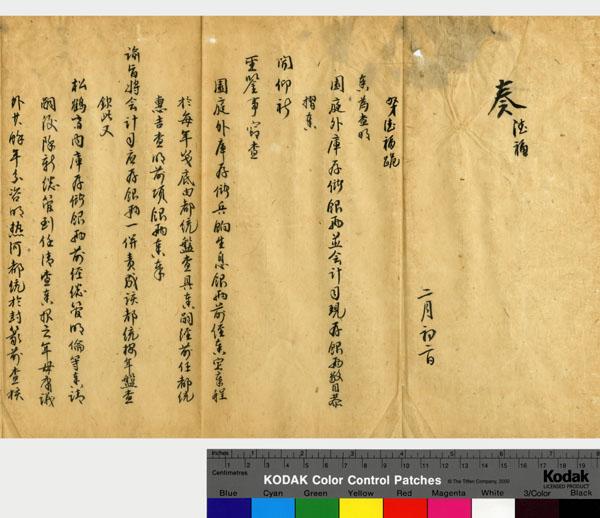 奏 德福
二月初二日
奴才德福跪
奏為查明
園庭外庫存儲銀兩並會計司現存銀兩數目恭
摺奏
聞仰祈
聖鑒事竊查
園庭外庫存儲兵餉生息銀兩前經奏定章程
於每年歲底由都統盤查具奏嗣經前任都統
惠吉查明前項銀兩奏奉
諭旨將會計司庫存銀兩一併責成該都統按年盤查
欽此又
松鶴齋內庫存儲銀兩前經總管明倫等奏請
嗣後除新總管到任清查奏報之年毋庸議
外其餘年分咨明熱河都統於封篆前查核
Inches 1 2 3 4 5 6 7 8
Centimetres 1 2 3 4 5 6 7 8 9 10 11 12 13 14 15 16 17 18 19
KODAK Color Control Patches © The Tiffen Company, 2000
Kodak
LICENSED PRODUCT
Blue Cyan Green Yellow Red Magenta White 3/Color Black